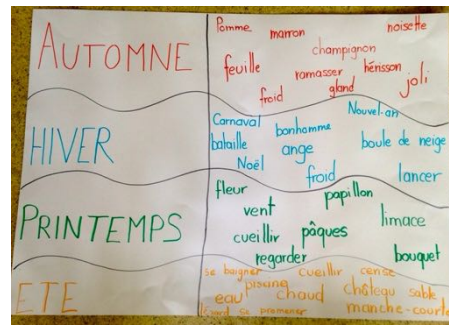 AUTOMNE
Pomme marron noisette
champignon
feuille ramasser hérisson
froid gland joli
HIVER
Carnaval bonhomme Nouvel-an
bataille ange boule de neige
Noël froid lancer
PRINTEMPS
fleur papillon
vent limace
cueillir pâques
regarder bouquet
ETE
se baigner cueillir cerise
piscine château sable
eau chaud
lézard se promener manche-courte